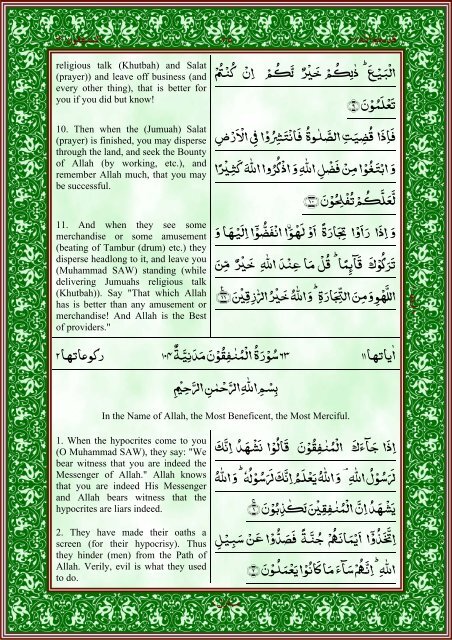 religious talk (Khutbah) and Salat
(prayer)) and leave off business (and
every other thing), that is better for
you if you did but know!
الْبَيْعَ ؕ ذٰلِكُمْ خَيْرٌ لَّكُمْ اِنْ كُنْتُمْ
تَعْلَمُوْنَ
10. Then when the (Jumuah) Salat
(prayer) is finished, you may disperse
through the land, and seek the Bounty
of Allah (by working, etc.), and
remember Allah much, that you may
be successful.
فَاِذَا قُضِيَتِ الصَّلٰوةُ فَانْتَشِرُوْا فِي الْاَرْضِ
وَ ابْتَغُوْا مِنْ فَضْلِ اللّٰهِ وَ اذْكُرُوا اللّٰهَ كَثِيْرًا
لَّعَلَّكُمْ تُفْلِحُوْنَ
11. And when they see some
merchandise or some amusement
(beating of Tambur (drum) etc.) they
disperse headlong to it, and leave you
(Muhammad SAW) standing (while
delivering Jumuahs religious talk
(Khutbah)). Say "That which Allah
has is better than any amusement or
merchandise! And Allah is the Best
of providers."
وَ اِذَا رَاَوْا تِجَارَةً اَوْ لَهْوَا۟ انْفَضُّوْۤا اِلَيْهَا وَ
تَرَكُوْكَ قَآىِٕمًا ؕ قُلْ مَا عِنْدَ اللّٰهِ خَيْرٌ مِّنَ
اللَّهْوِ وَ مِنَ التِّجَارَةِ ؕ وَ اللّٰهُ خَيْرُ الرّٰزِقِيْنَ
اٰياتها ۱۱ ۶۳ سُوْرَةُ الْمُنٰفِقُوْنَ مَدَنِيَّةٌ ۱۰۴ ركوعاتها ۲
بِسْمِ اللّٰهِ الرَّحْمٰنِ الرَّحِيْمِ
In the Name of Allah, the Most Beneficent, the Most Merciful.
1. When the hypocrites come to you
(O Muhammad SAW), they say: "We
bear witness that you are indeed the
Messenger of Allah." Allah knows
that you are indeed His Messenger
and Allah bears witness that the
hypocrites are liars indeed.
اِذَا جَآءَكَ الْمُنٰفِقُوْنَ قَالُوْا نَشْهَدُ اِنَّكَ
لَرَسُوْلُ اللّٰهِ ۘ وَ اللّٰهُ يَعْلَمُ اِنَّكَ لَرَسُوْلُهٗ ؕ وَ اللّٰهُ
يَشْهَدُ اِنَّ الْمُنٰفِقِيْنَ لَكٰذِبُوْنَ
2. They have made their oaths a
screen (for their hypocrisy). Thus
they hinder (men) from the Path of
Allah. Verily, evil is what they used
to do.
اِتَّخَذُوْۤا اَيْمَانَهُمْ جُنَّةً فَصَدُّوْا عَنْ سَبِيْلِ
اللّٰهِ ؕ اِنَّهُمْ سَآءَ مَا كَانُوْا يَعْمَلُوْنَ